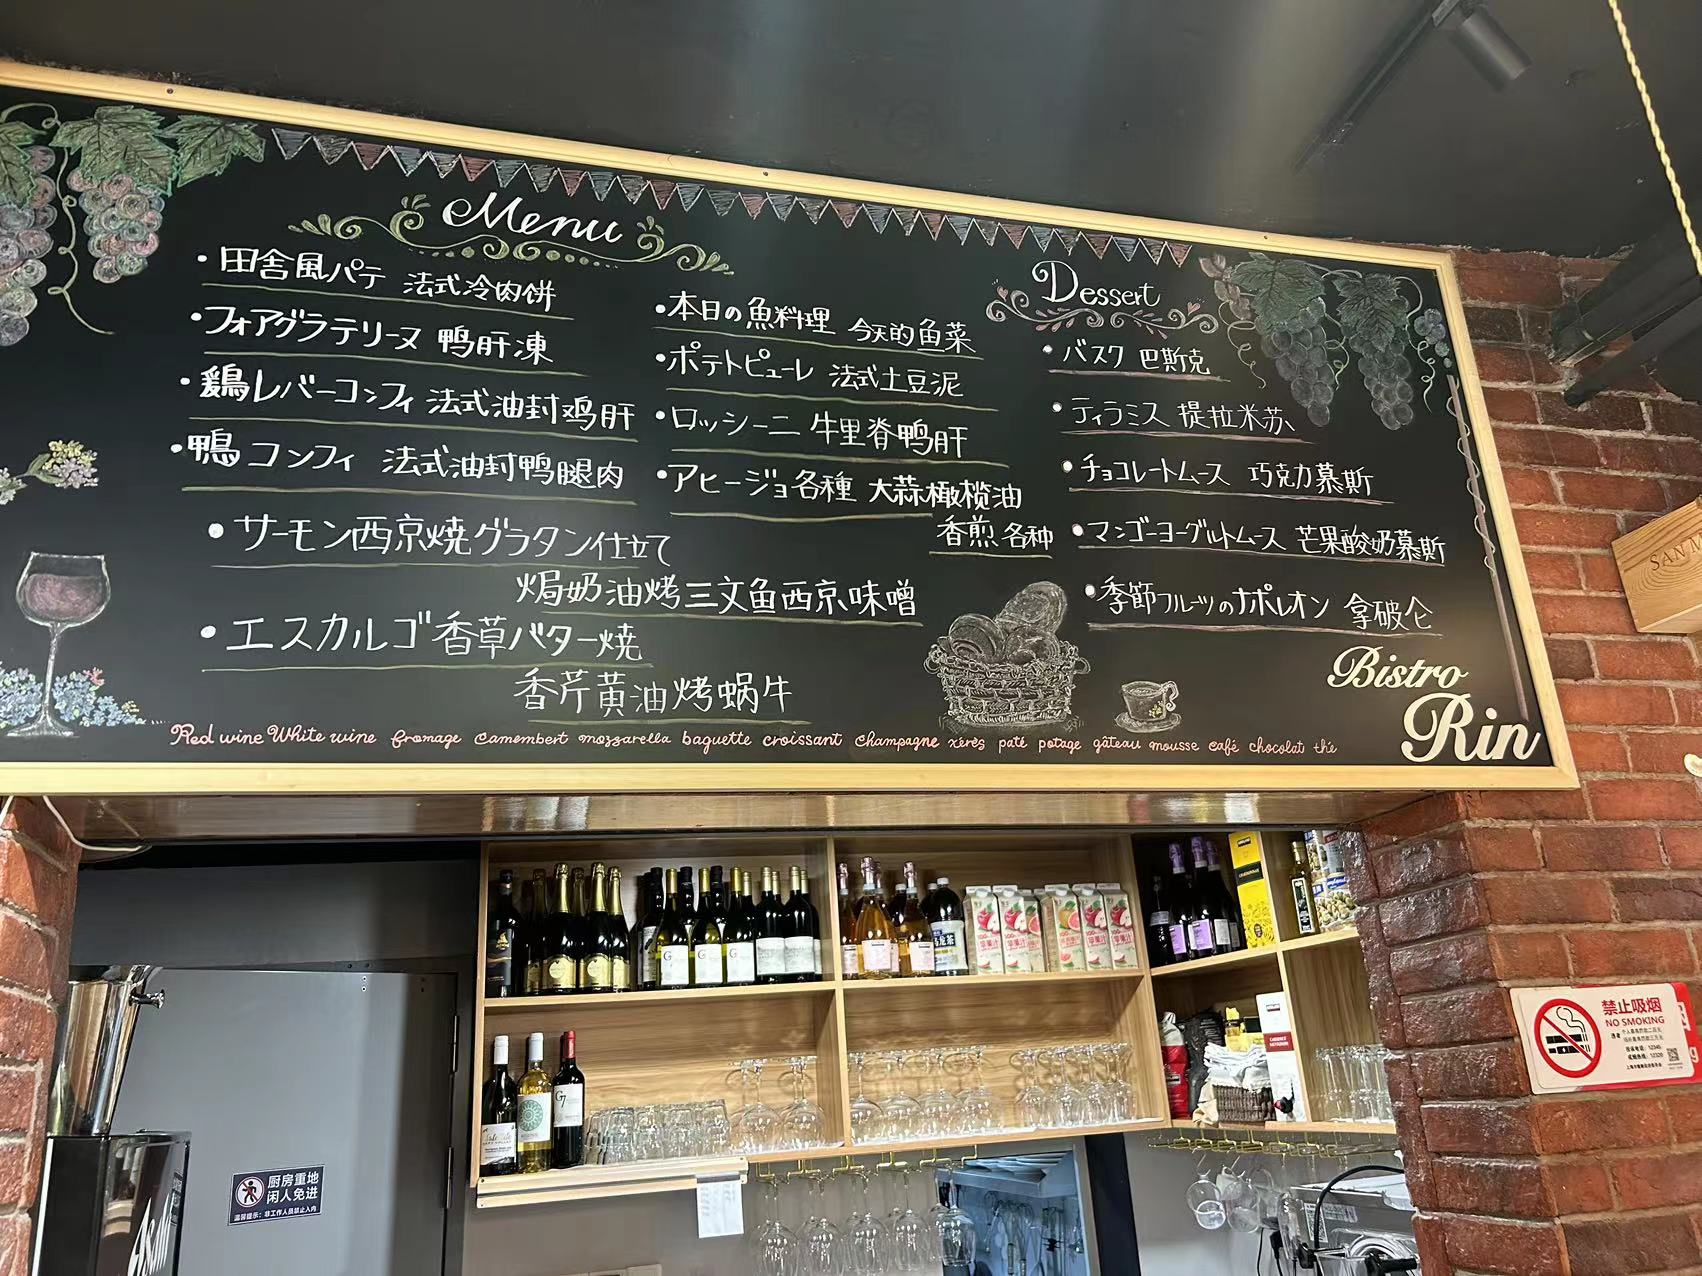 Menu
・田舎風パテ 法式冷肉饼
・フォアグラテリーヌ 鸭肝凍
・鶏レバーコンフィ 法式油封鸡肝
・鴨コンフィ 法式油封鸭腿肉
・サーモン西京焼グラタン仕立て
焗奶油烤三文鱼西京味噌
・エスカルゴ香草バター焼
香芹黄油烤蜗牛
・本日の魚料理 今天的鱼菜
・ポテトピューレ 法式土豆泥
・ロッシーニ 牛里脊鸭肝
・アヒージョ各種 大蒜橄榄油
香煎各种
Dessert
・バスク 巴斯克
・ティラミス 提拉米苏
・チョコレートムース 巧克力慕斯
・マンゴーヨーグルトムース 芒果酸奶慕斯
・季節フルーツのナポレオン 拿破仑
Bistro
Rin
Red wine White wine fromage camembert mozzarella baguette croissant champagne xérès paté potage gâteau mousse café chocolat thé
SAN M
禁止吸烟
NO SMOKING
厨房重地
闲人免进
温馨提示：非工作人员禁止入内
Asahi
G7